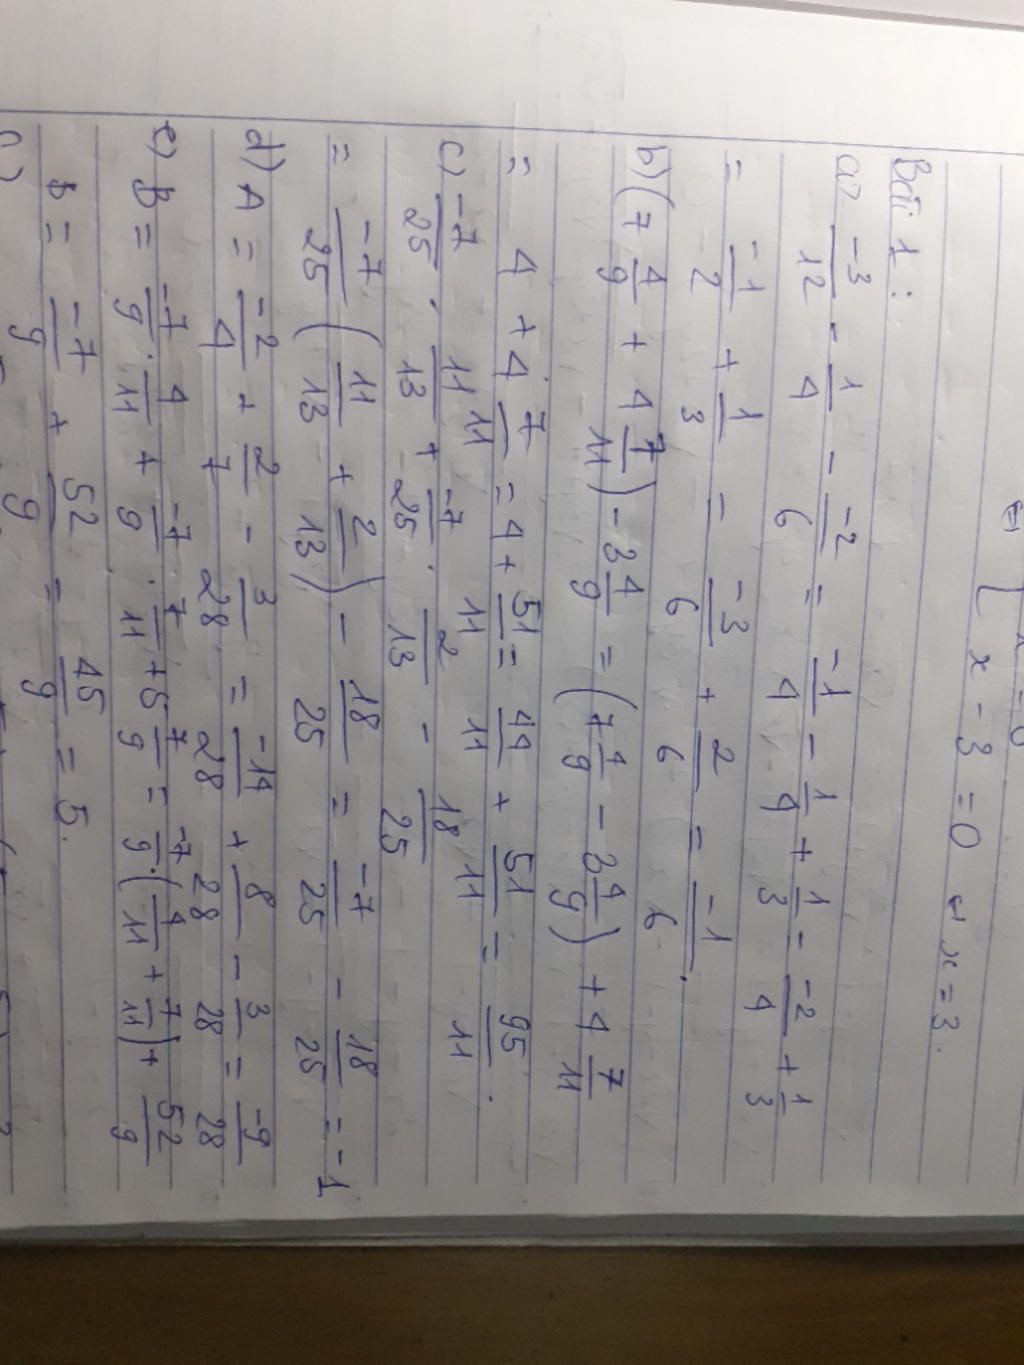 x - 3 = 0 x = 3.
Bài 1:
a) -3/12 - 1/4 - -2/6 = -1/4 - 1/4 + 1/3 = -2/4 + 1/3
= -1/2 + 1/3 = -3/6 + 2/6 = -1/6.
b) (7 4/9 + 4 7/11) - 3 4/9 = (7 4/9 - 3 4/9) + 4 7/11
= 4 + 4 7/11 = 4 + 51/11 = 44/11 + 51/11 = 95/11.
c) -7/25 . 11/13 + -7/25 . 2/13 - 18/25
= -7/25 (11/13 + 2/13) - 18/25 = -7/25 - 18/25 = -1
d) A = -2/4 + 2/7 - 3/28 = -14/28 + 8/28 - 3/28 = -9/28
e) B = -7/9 . 4/11 + -7/9 . 7/11 + 5 7/9 = -7/9 . (4/11 + 7/11) + 52/9
B = -7/9 + 52/9 = 45/9 = 5.